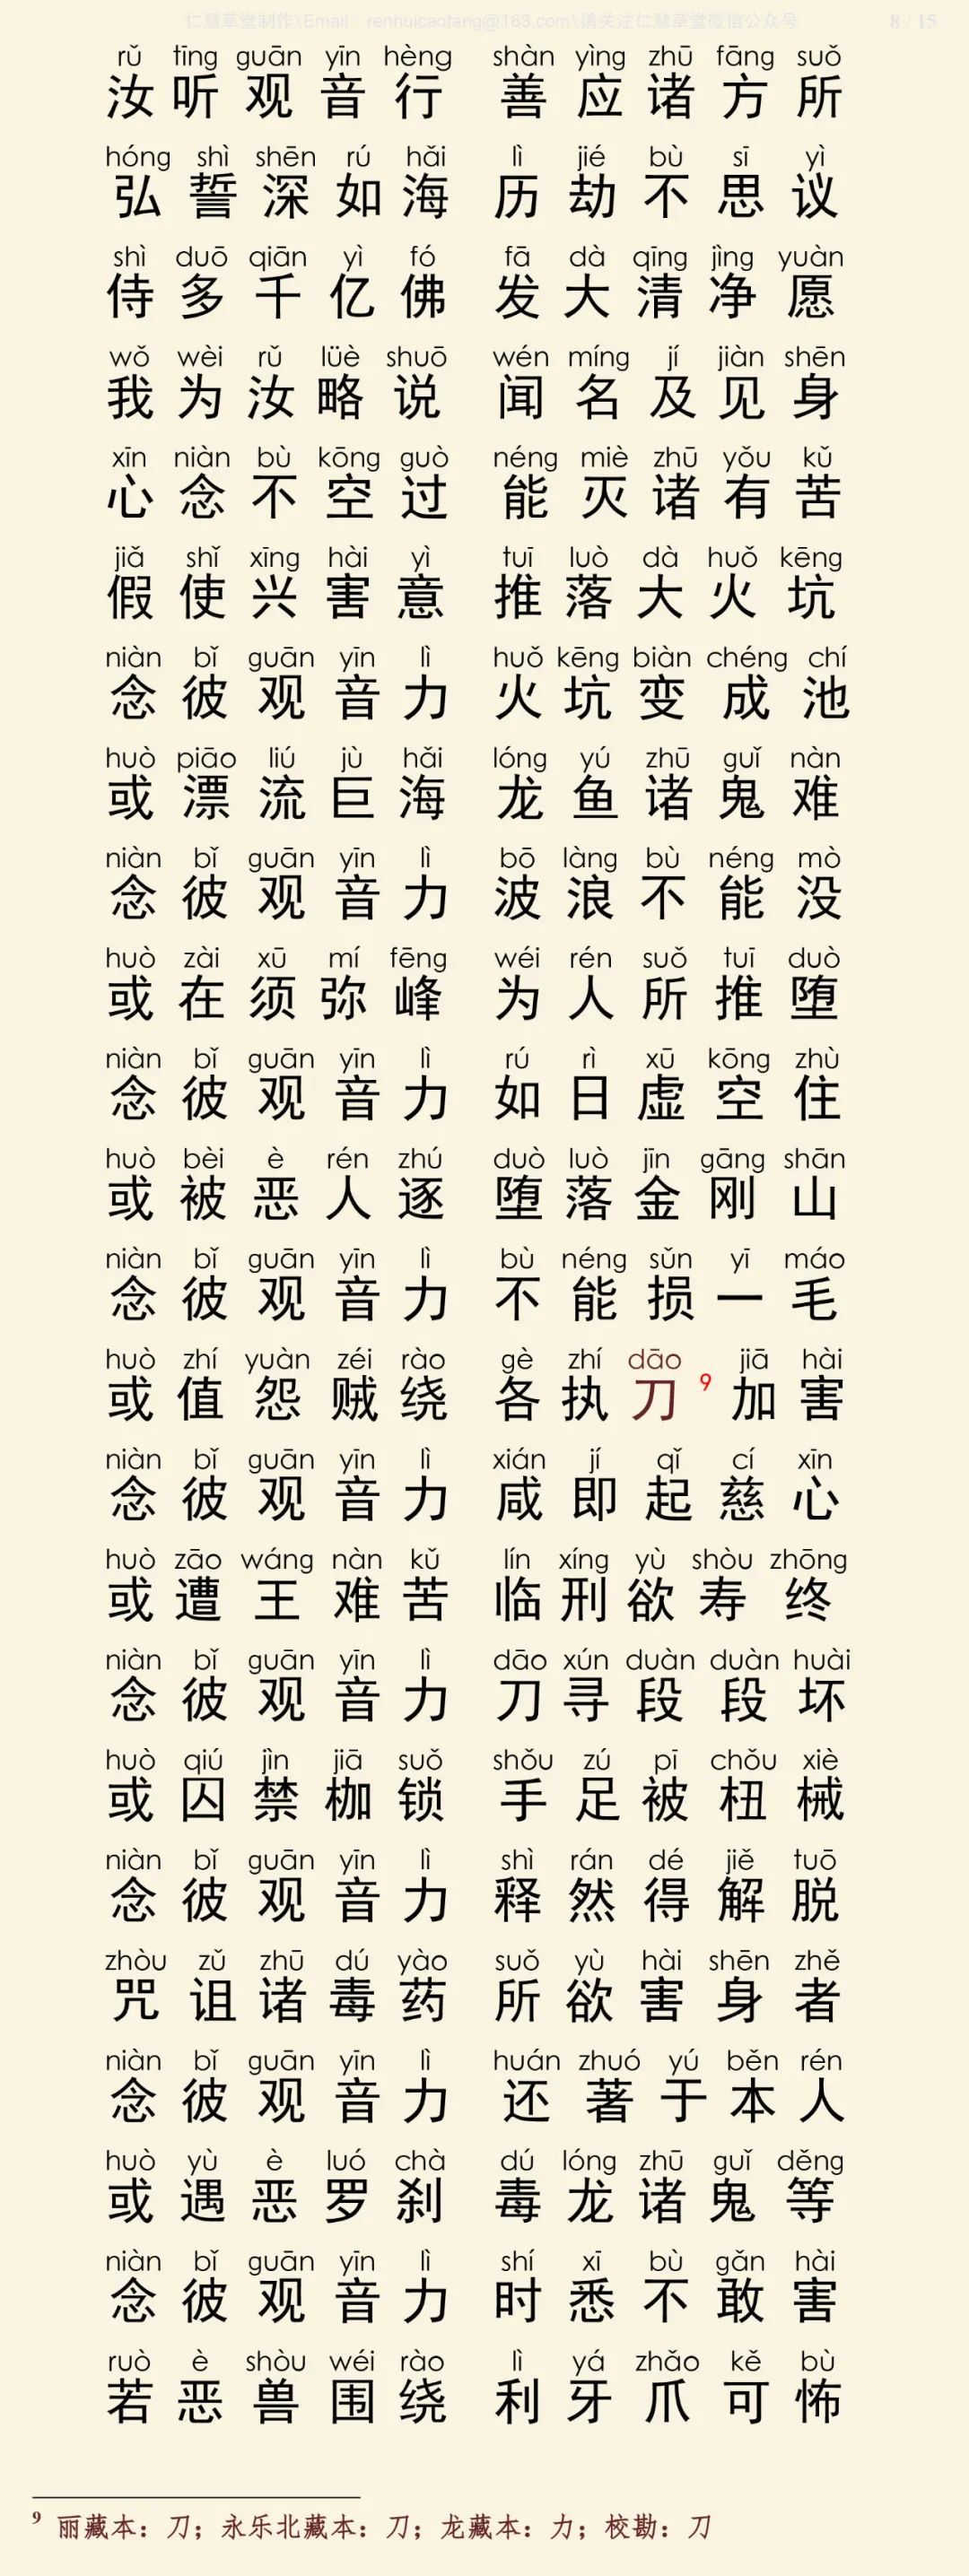 仁慧草堂制作\Email：renhuicaotang@163.com\请关注仁慧草堂微信公众号 8 / 15
rǔ tīng guān yīn hèng shàn yìng zhū fāng suǒ
汝听观音行 善应诸方所
hóng shì shēn rú hǎi lì jié bù sī yì
弘誓深如海 历劫不思议
shì duō qiān yì fó fā dà qīng jìng yuàn
侍多千亿佛 发大清净愿
wǒ wèi rǔ lüè shuō wén míng jí jiàn shēn
我为汝略说 闻名及见身
xīn niàn bù kōng guò néng miè zhū yǒu kǔ
心念不空过 能灭诸有苦
jiǎ shǐ xīng hài yì tuī luò dà huǒ kēng
假使兴害意 推落大火坑
niàn bǐ guān yīn lì huǒ kēng biàn chéng chí
念彼观音力 火坑变成池
huò piāo liú jù hǎi lóng yú zhū guǐ nàn
或漂流巨海 龙鱼诸鬼难
niàn bǐ guān yīn lì bō làng bù néng mò
念彼观音力 波浪不能没
huò zài xū mí fēng wéi rén suǒ tuī duò
或在须弥峰 为人所推堕
niàn bǐ guān yīn lì rú rì xū kōng zhù
念彼观音力 如日虚空住
huò bèi è rén zhú duò luò jīn gāng shān
或被恶人逐 堕落金刚山
niàn bǐ guān yīn lì bù néng sǔn yī máo
念彼观音力 不能损一毛
huò zhí yuàn zéi rào gè zhí dāo jiā hài
或值怨贼绕 各执刀9加害
niàn bǐ guān yīn lì xián jí qǐ cí xīn
念彼观音力 咸即起慈心
huò zāo wáng nàn kǔ lín xíng yù shòu zhōng
或遭王难苦 临刑欲寿终
niàn bǐ guān yīn lì dāo xún duàn duàn huài
念彼观音力 刀寻段段坏
huò qiú jìn jiā suǒ shǒu zú pī chǒu xiè
或囚禁枷锁 手足被杻械
niàn bǐ guān yīn lì shì rán dé jiě tuō
念彼观音力 释然得解脱
zhòu zǔ zhū dú yào suǒ yù hài shēn zhě
咒诅诸毒药 所欲害身者
niàn bǐ guān yīn lì huán zhuó yú běn rén
念彼观音力 还著于本人
huò yù è luó chà dú lóng zhū guǐ děng
或遇恶罗刹 毒龙诸鬼等
niàn bǐ guān yīn lì shí xī bù gǎn hài
念彼观音力 时悉不敢害
ruò è shòu wéi rào lì yá zhǎo kě bù
若恶兽围绕 利牙爪可怖
9 丽藏本：刀；永乐北藏本：刀；龙藏本：力；校勘：刀